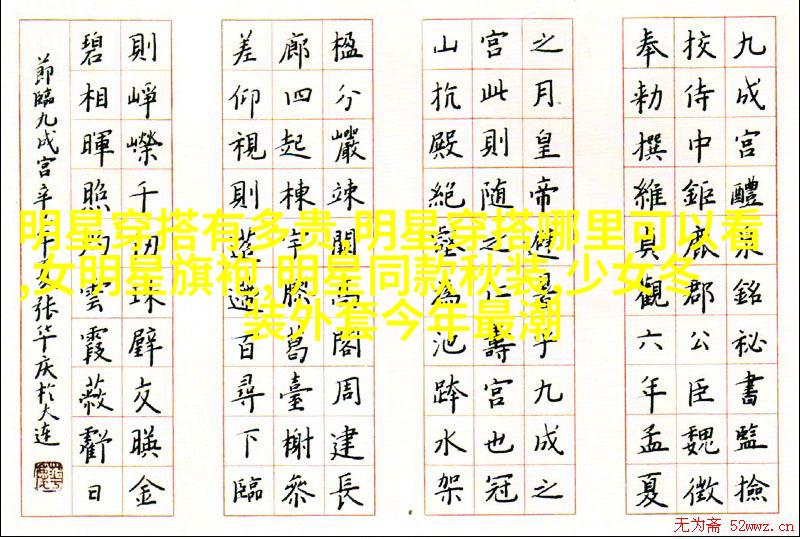 九成宮醴泉銘秘書監撿
挍侍中鉅鹿郡公臣魏徵
奉勑撰維貞觀六年孟夏
之月皇帝避暑乎九成之
宮此則随之仁壽宮也冠
山抗殿絶壑為池跨水架
楹分巖竦闕高閣周建長
廊四起棟宇膠葛臺榭參
差仰視則迢遰百尋下臨
則崢嶸千仞珠璧交暎金
碧相暉照灼雲霞蔽虧日
節臨九成宮辛张华庆於大连
明星穿搭有多贵,明星穿搭哪里可以看
,女明星旗袍,明星同款秋装,少女冬
装外套今年最潮
无为斋 52wwz.cn